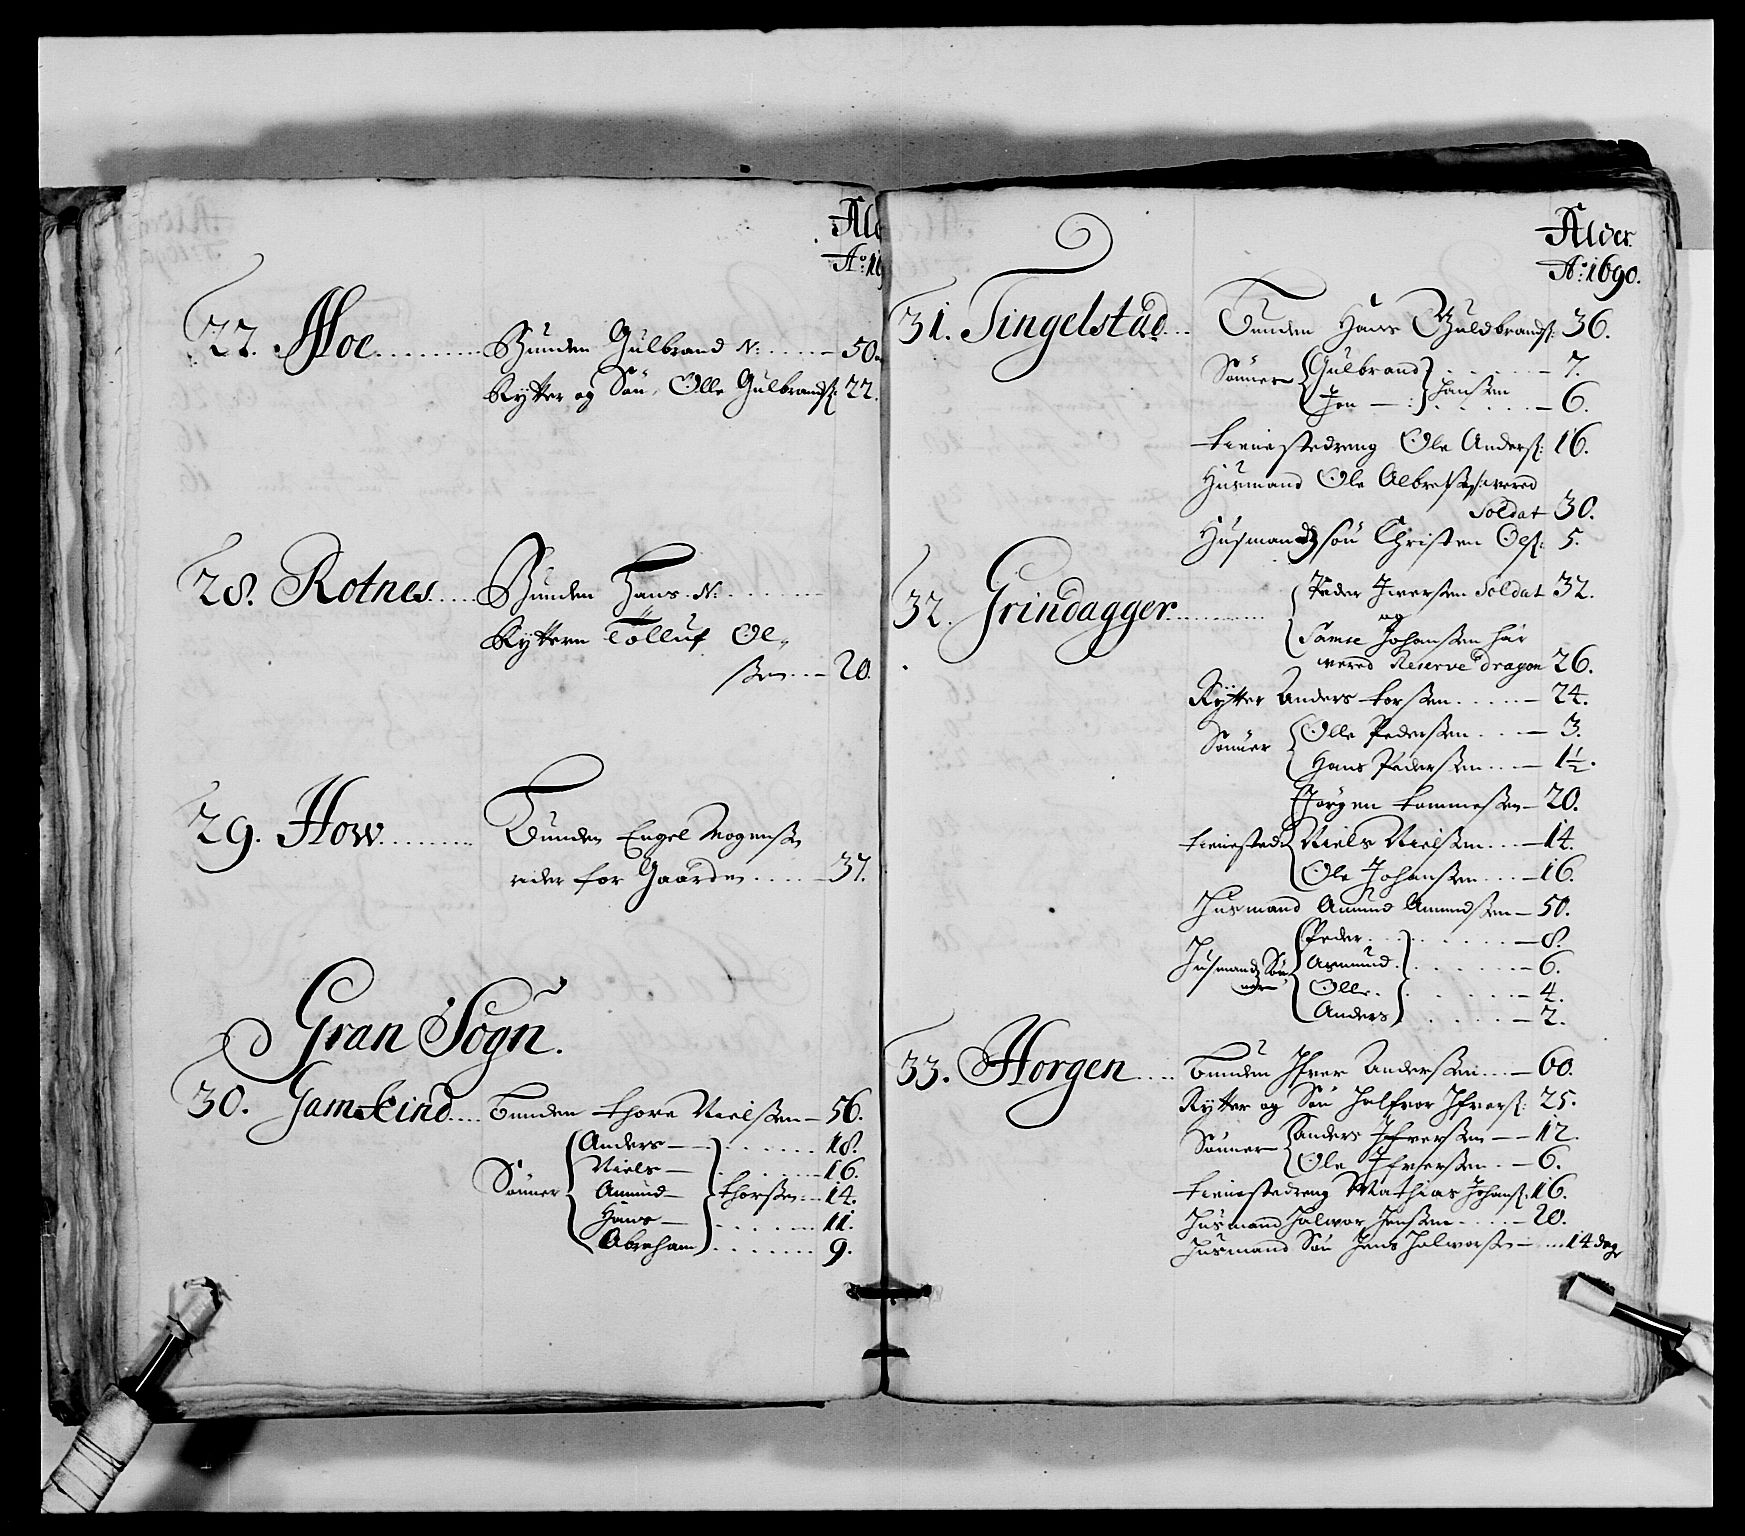 Ald
Ao: 16
27. Moe
Bunden Gulbrand N: 50.
Rytter og Søn, Olle Gulbrandß: 22.
28. Rotnes
Bunden Hans N:
Ryttern Tölluf Ol-
ßen 20.
29. How
Bunden Engel Mogenß
rider for Gaarden 37.
Gran Sogn.
30. Gamkind
Bunden Thore Nielßen 56.
Sønner
Anders 18.
Niels 16.
Amund Thorßen 14.
Hans 11.
Abraham 9.
Alder
Ao: 1690.
31. Tingelstad
Bunden Hans Guldbrandß: 36.
Sønner Gulbrand 7.
Jon Hanßen 6.
Tienistedreng Ole Anderß: 16.
Husmand Ole Albretß: wered
Soldat 30.
Husmands søn Christen Olß: 5.
32. Grindagger
Peder Iwerßen Soldat 32.
og
Samse Johanßen har
wered Reserve dragon 26.
Rytter Anders Torßen 24.
Sønner Olle Pederßen 3.
Hans Pederßen 1½.
Jørgen Tommeßen 20.
Tienisted: Niels Nielßen 14.
Ole Johanßen 16.
Husmand Amund Amundßen 50.
Husmands Søn-
ner
Peder 8.
Asmund 6.
Olle 4.
Anders 2.
33. Horgen
Bunden Ifver Anderßen 60.
Rytter og Søn Halfvor Ifverß: 25.
Sønner Anders Ifverßen 12.
Ole Ifverßen 6.
Tienistedreng Mathias Johanß: 16.
Husmand Halwor Jenßen 20.
Husmand Søn Jens Halworßen 14 dage